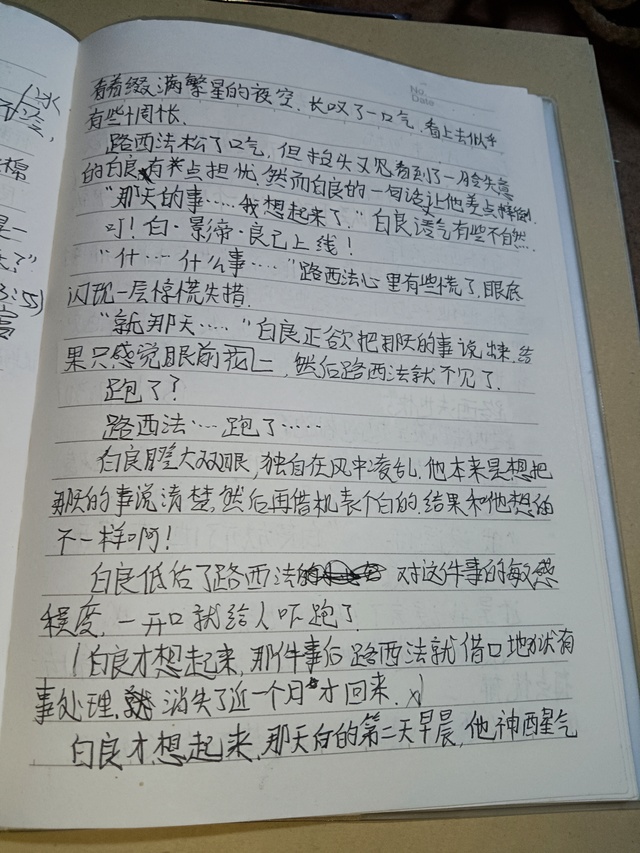 No.
Date
看着缀满繁星的夜空，长叹了一口气，看上去似乎
有些惆怅.
路西法松了口气，但抬头又见看到了一脸失意
的白良，有关点担忧，然而白良的一句话让他差点
“那天的事……我想起来了.”白良语气有些不自然.
叮！白·影帝·良已上线！
“什……什么事……”路西法心里有些慌了，眼底
闪现一层惊慌失措.
“就那天……”白良正欲把那天的事说出来，结
果只感觉眼前一，然后路西法就不见了.
跑了？
路西法……跑了……
白良瞪大双眼，独自在风中凌乱.他本来是想把
那天的事说清楚，然后再借机表个白的.结果和他想的
不一样啊！
白良低估了路西法对这件事的敏感
程度，一开口就给人吓跑了.
（白良才想起来，那件事后路西法就借口地狱有
事处理，消失了近一个月才回来.）
白良才想起来，那天白的第二天早晨，他神酉星气
水
棉
是一
了”